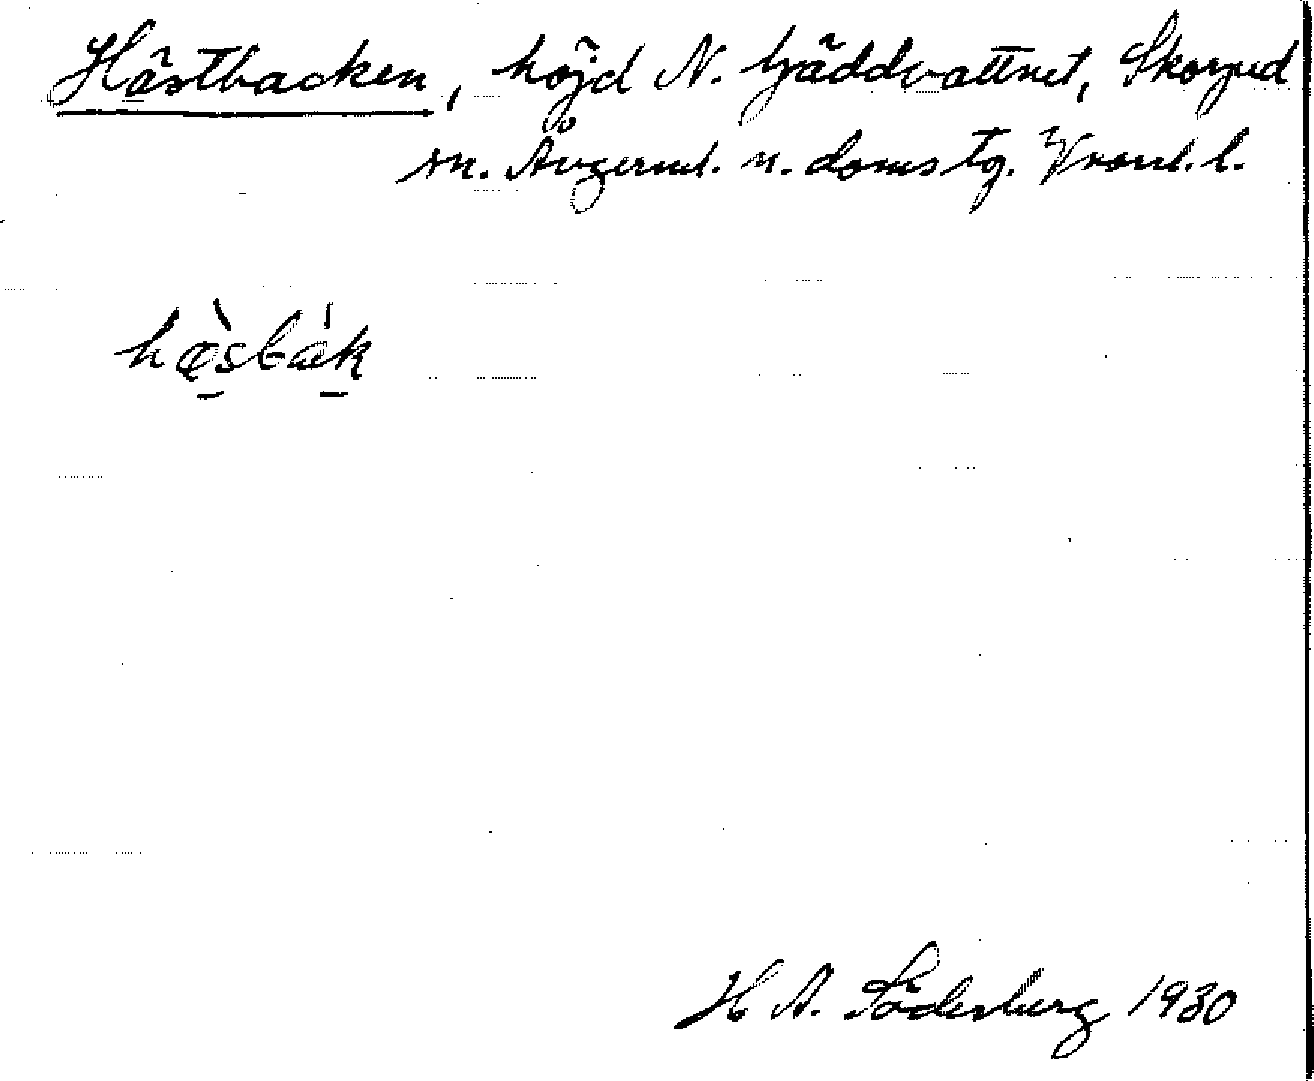 Hästbacken, höjd N. Gäddvattnet, Skorped
sn. Ångerml. n. doms tg. Vnorrl. l.
hæ̀sbák
H A. Söderberg 1930